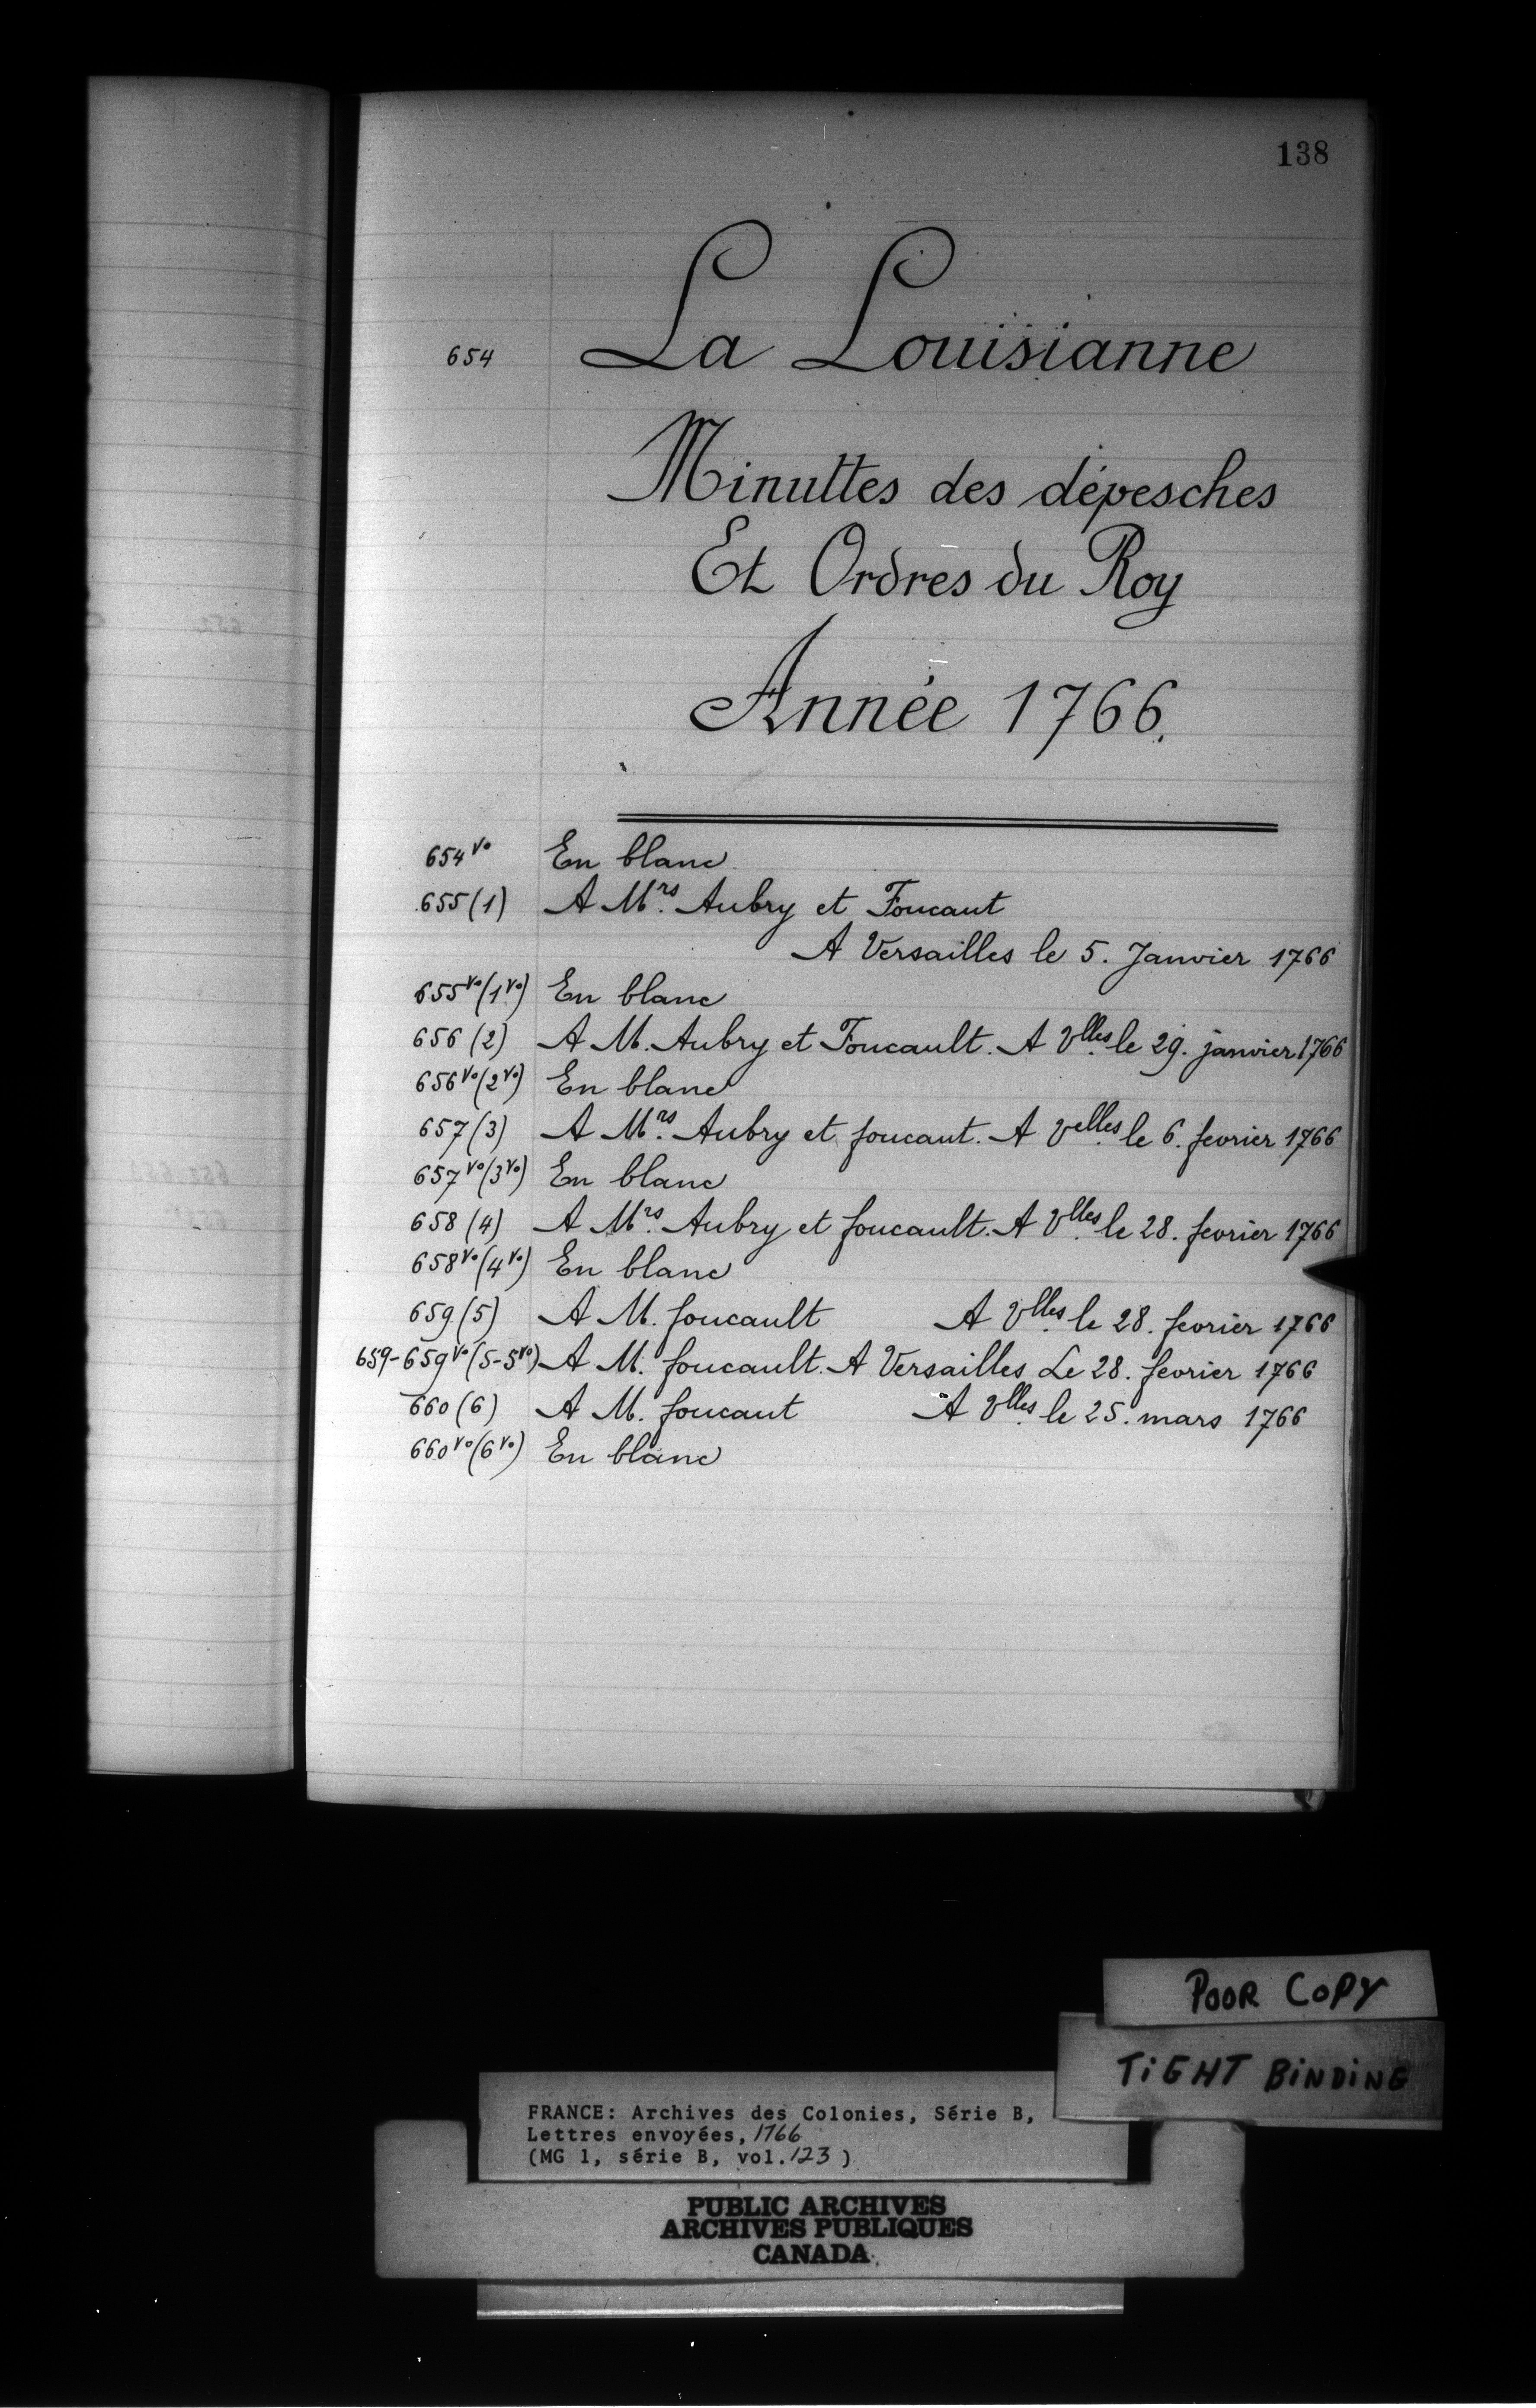 138
654 La Louisianne
Minuttes des dépesches
Et Ordres du Roy
Année 1766.
654 vo En blanc
655 (1) A Mrs. Aubry et Foucaut
A Versailles le 5. Janvier 1766
655 vo (1 vo) En blanc
656 (2) A M. Aubry et Foucault. A Vlles. le 29. janvier 1766
656 vo (2 vo) En blanc
657 (3) A Mrs. Aubry et foucaut. A Velles. le 6. fevrier 1766
657 vo (3 vo) En blanc
658 (4) A Mrs. Aubry et foucault. A Vlles. le 28. fevrier 1766
658 vo (4 vo) En blanc
659 (5) A M. foucault A Vlles. le 28. fevrier 1766
659-659 vo (5-5 vo) A M. foucault. A Versailles Le 28. fevrier 1766
660 (6) A M. foucaut A Vlles. le 25. mars 1766
660 vo (6 vo) En blanc
POOR COPY
TIGHT BINDING
FRANCE: Archives des Colonies, Série B,
Lettres envoyées, 1766
(MG 1, série B, vol. 123)
PUBLIC ARCHIVES
ARCHIVES PUBLIQUES
CANADA